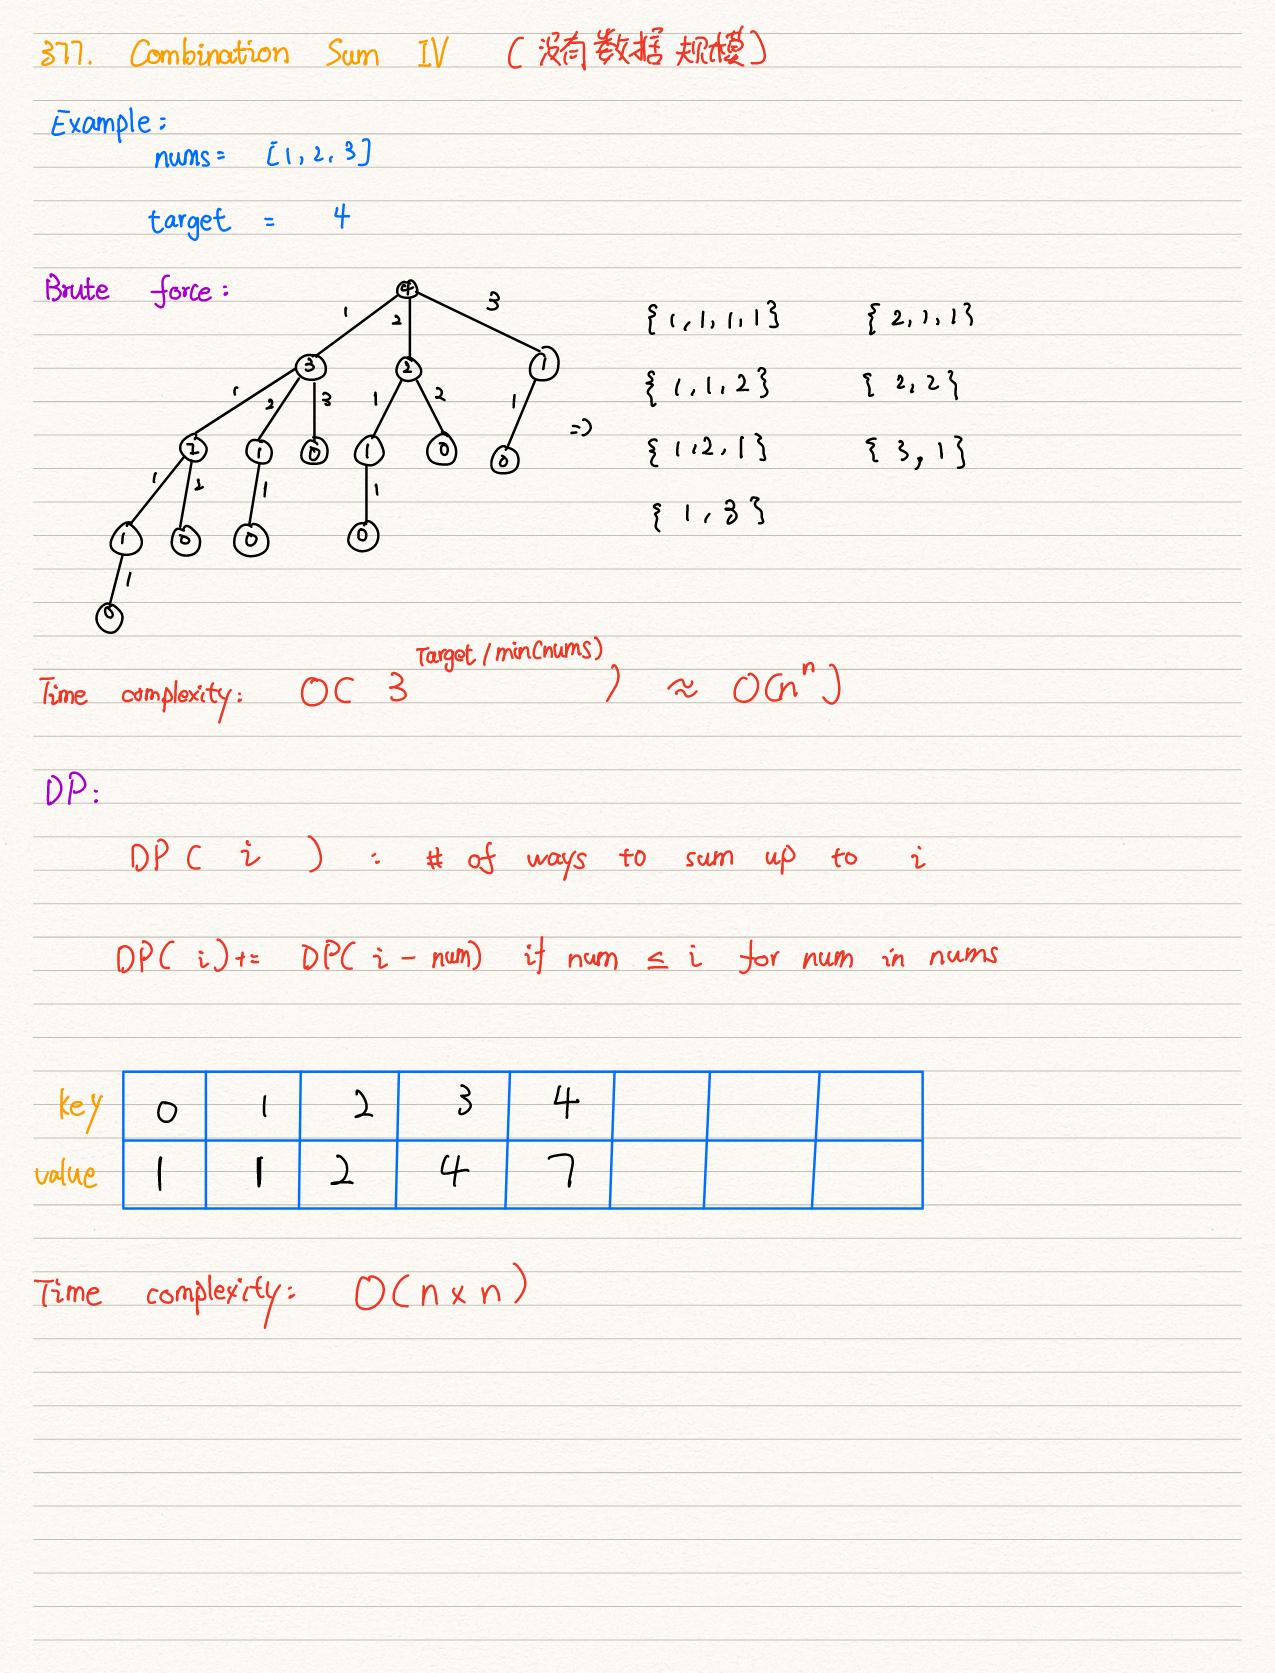 377. Combination Sum IV (没有数据规模)
Example:
nums= [1, 2, 3]
target = 4
Brute force:
4
1 2 3
3 2 1
1 2 3 1 2 1
2 1 0 1 0 0
1 2 1 1
1 0 0 0
1
0
=>
{1, 1, 1, 1} {2, 1, 1}
{1, 1, 2} {2, 2}
{1, 2, 1} {3, 1}
{1, 3}
Time complexity: O( 3^Target/min(nums) ) ≈ O(n^n)
DP:
DP( i ) : # of ways to sum up to i
DP( i)+= DP( i - num) if num ≤ i for num in nums
key 0 1 2 3 4
value 1 1 2 4 7
Time complexity: O(n x n)